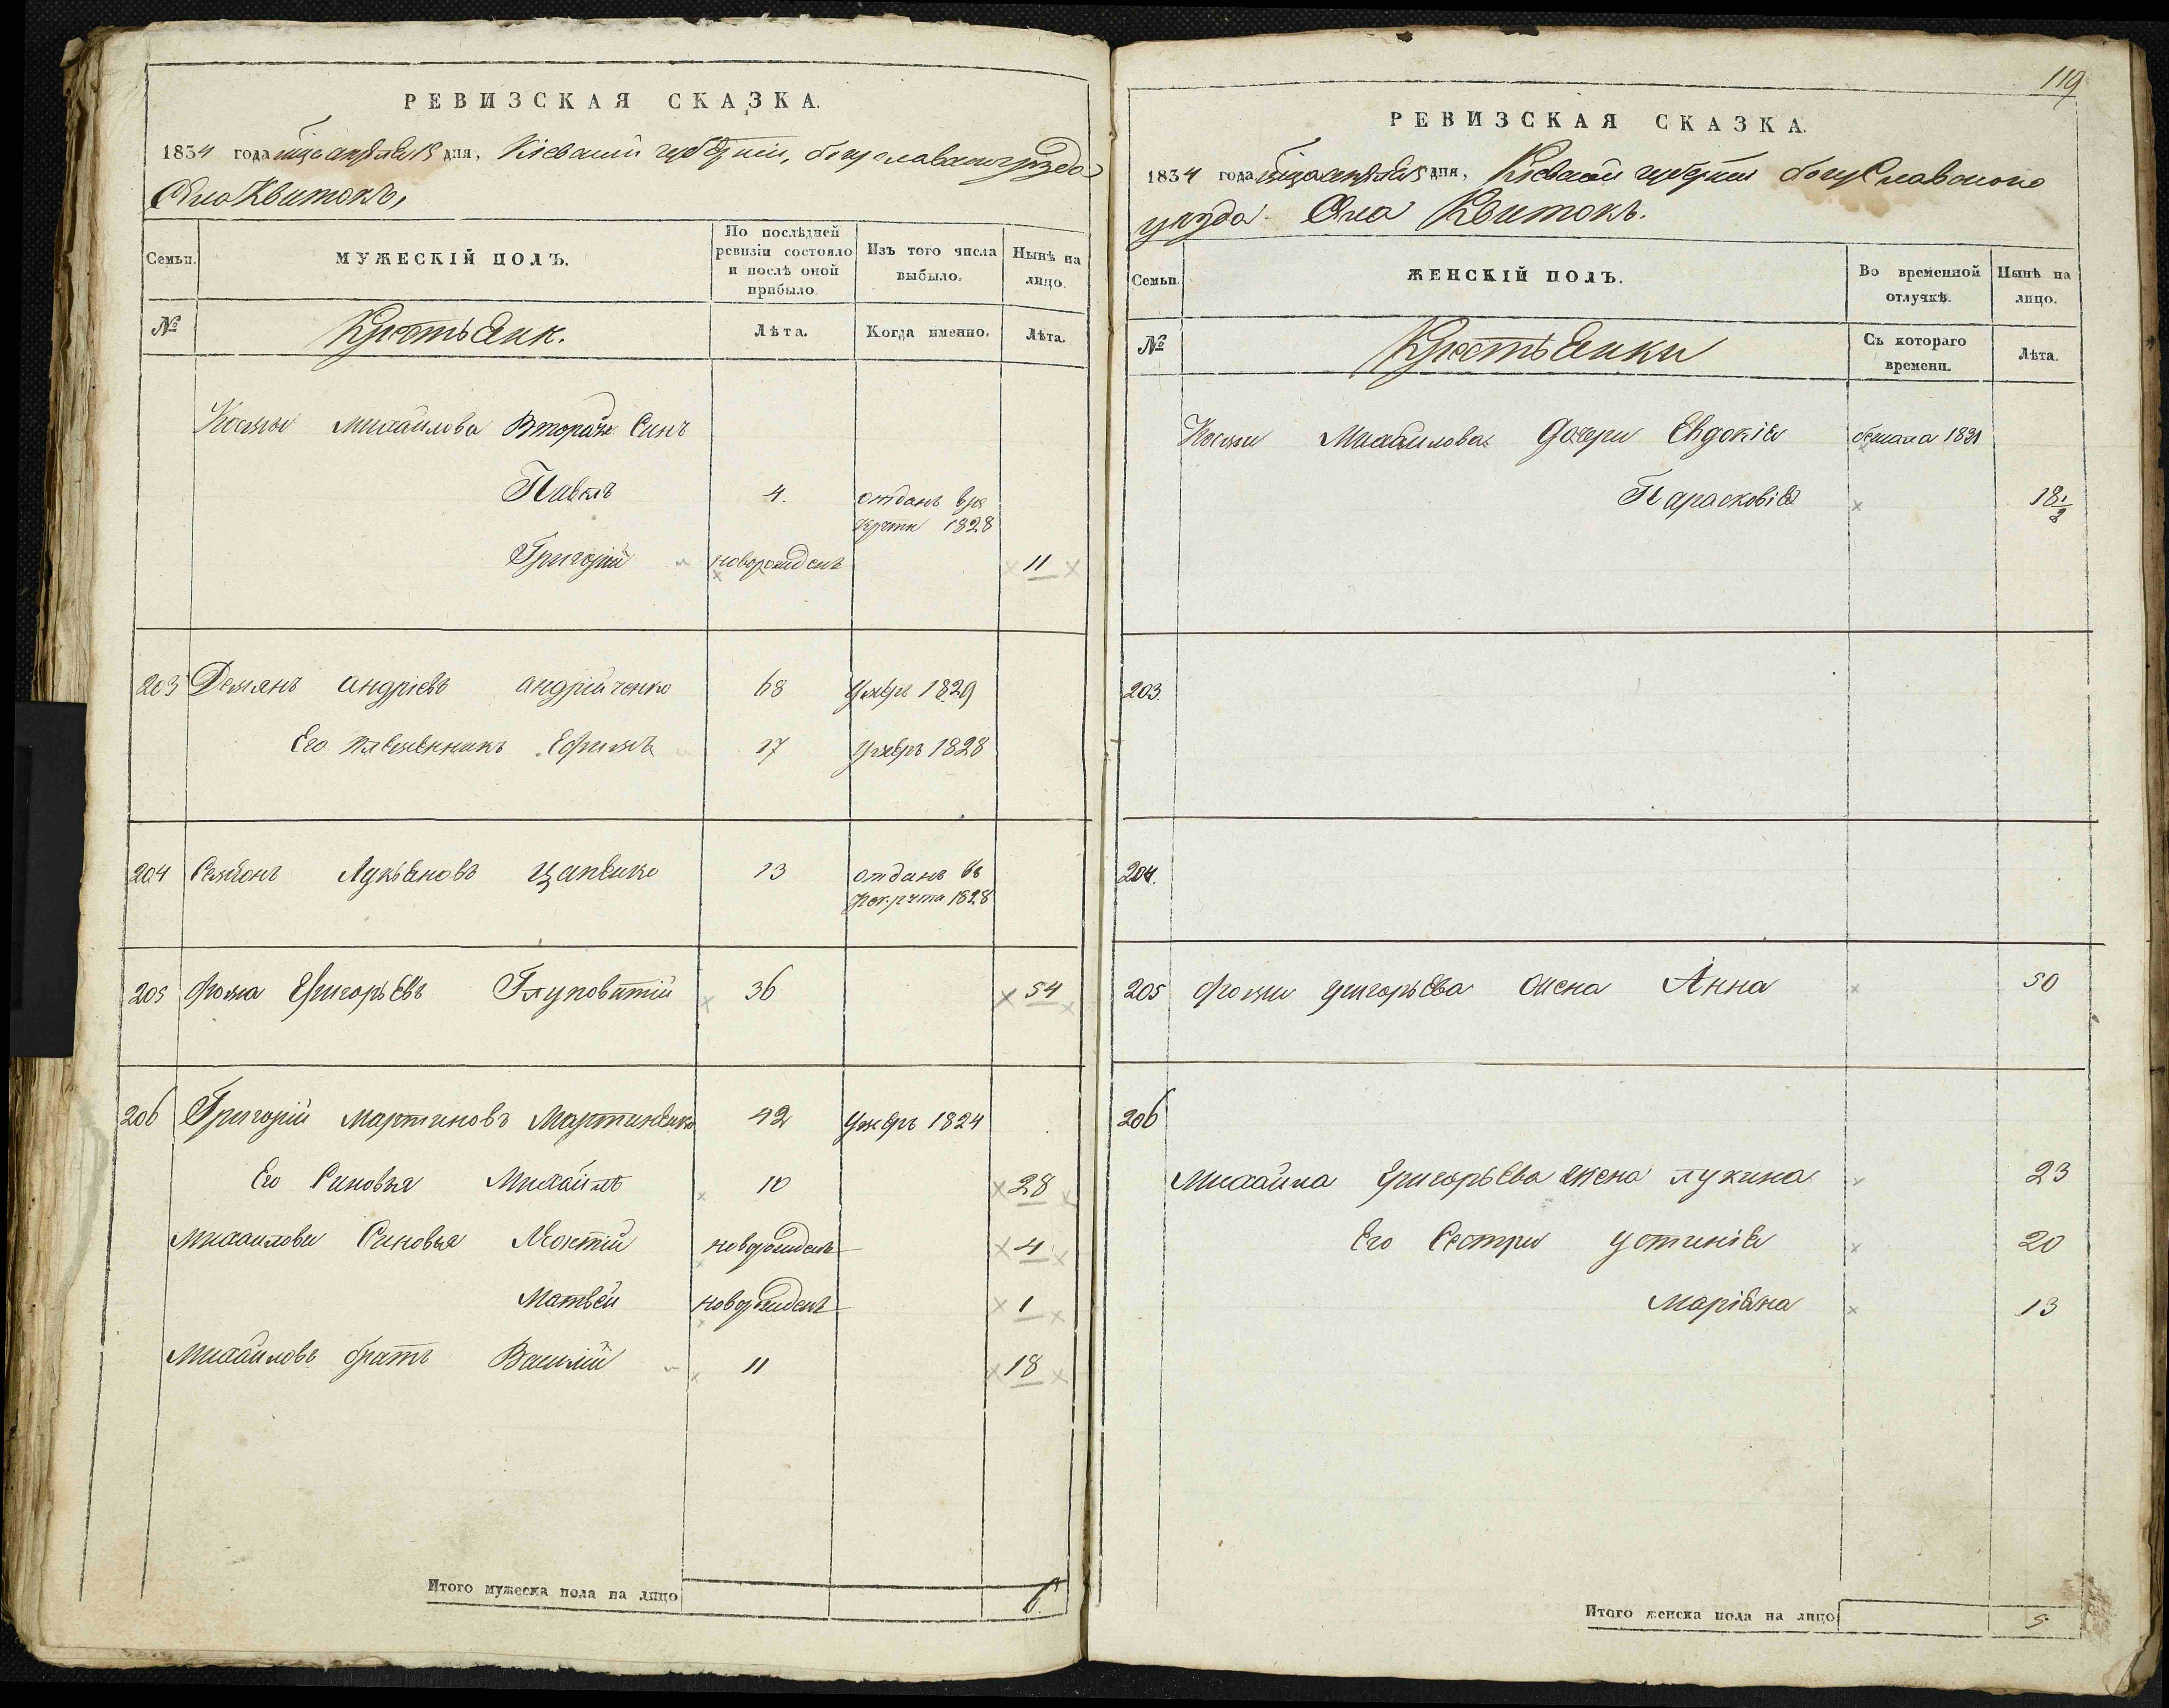 РЕВИЗСКАЯ СКАЗКА.
1834 года мца апреля 15 дня, Кіевской губерніи, богуславского уезда
Села Квитокъ,
Семьи.
МУЖЕСКІЙ ПОЛЪ.
По послѣдней ревизіи состояло и послѣ оной прибыло.
Изъ того числа выбыло.
Нынѣ на лицо.
№
Крестьяне.
Лѣта.
Когда именно.
Лѣта.
Козмы Михайлова Синъ
Павелъ 4. отданъ в ре
крути 1828
Григорій новорожденъ 11
203 Демянъ андріевъ андрійченко 68 Умеръ 1829
Его племенникъ Ефимъ 17 Умеръ 1828
204 Семіонъ Лукьяновъ Цапенко 13 отданъ въ
рекрута 1828
205 Фома Григорьевъ Глуповатій 36 54
206 Григорій Мартиновъ Мартиненко 42 Умеръ 1824
Его Синовья Михайло 10 28
Михаилови Синовья новорожденъ 4
Матвей новорожденъ 1
Михайловъ братъ Василій 11 18
Итого мужеска пола на лицо 6.
119
РЕВИЗСКАЯ СКАЗКА.
1834 года мца апреля 15 дня, Кіевской губерніи богуславского
уезда Села Квитокъ.
Семьи.
ЖЕНСКІЙ ПОЛЪ.
Во временной отлучкѣ.
Нынѣ на лицо.
№
Крестьянки
Съ котораго времени.
Лѣта.
Козми Михайлова дочери Евдокія бежала 1831
Парасковія 18 1/2
203.
204.
205 Фоми григорьева жена Анна 50
206
Михайла Григорьева жена Лукина 23
Его Сестри устинія 20
Маріяна 13
Итого женска пола на лицо 5.